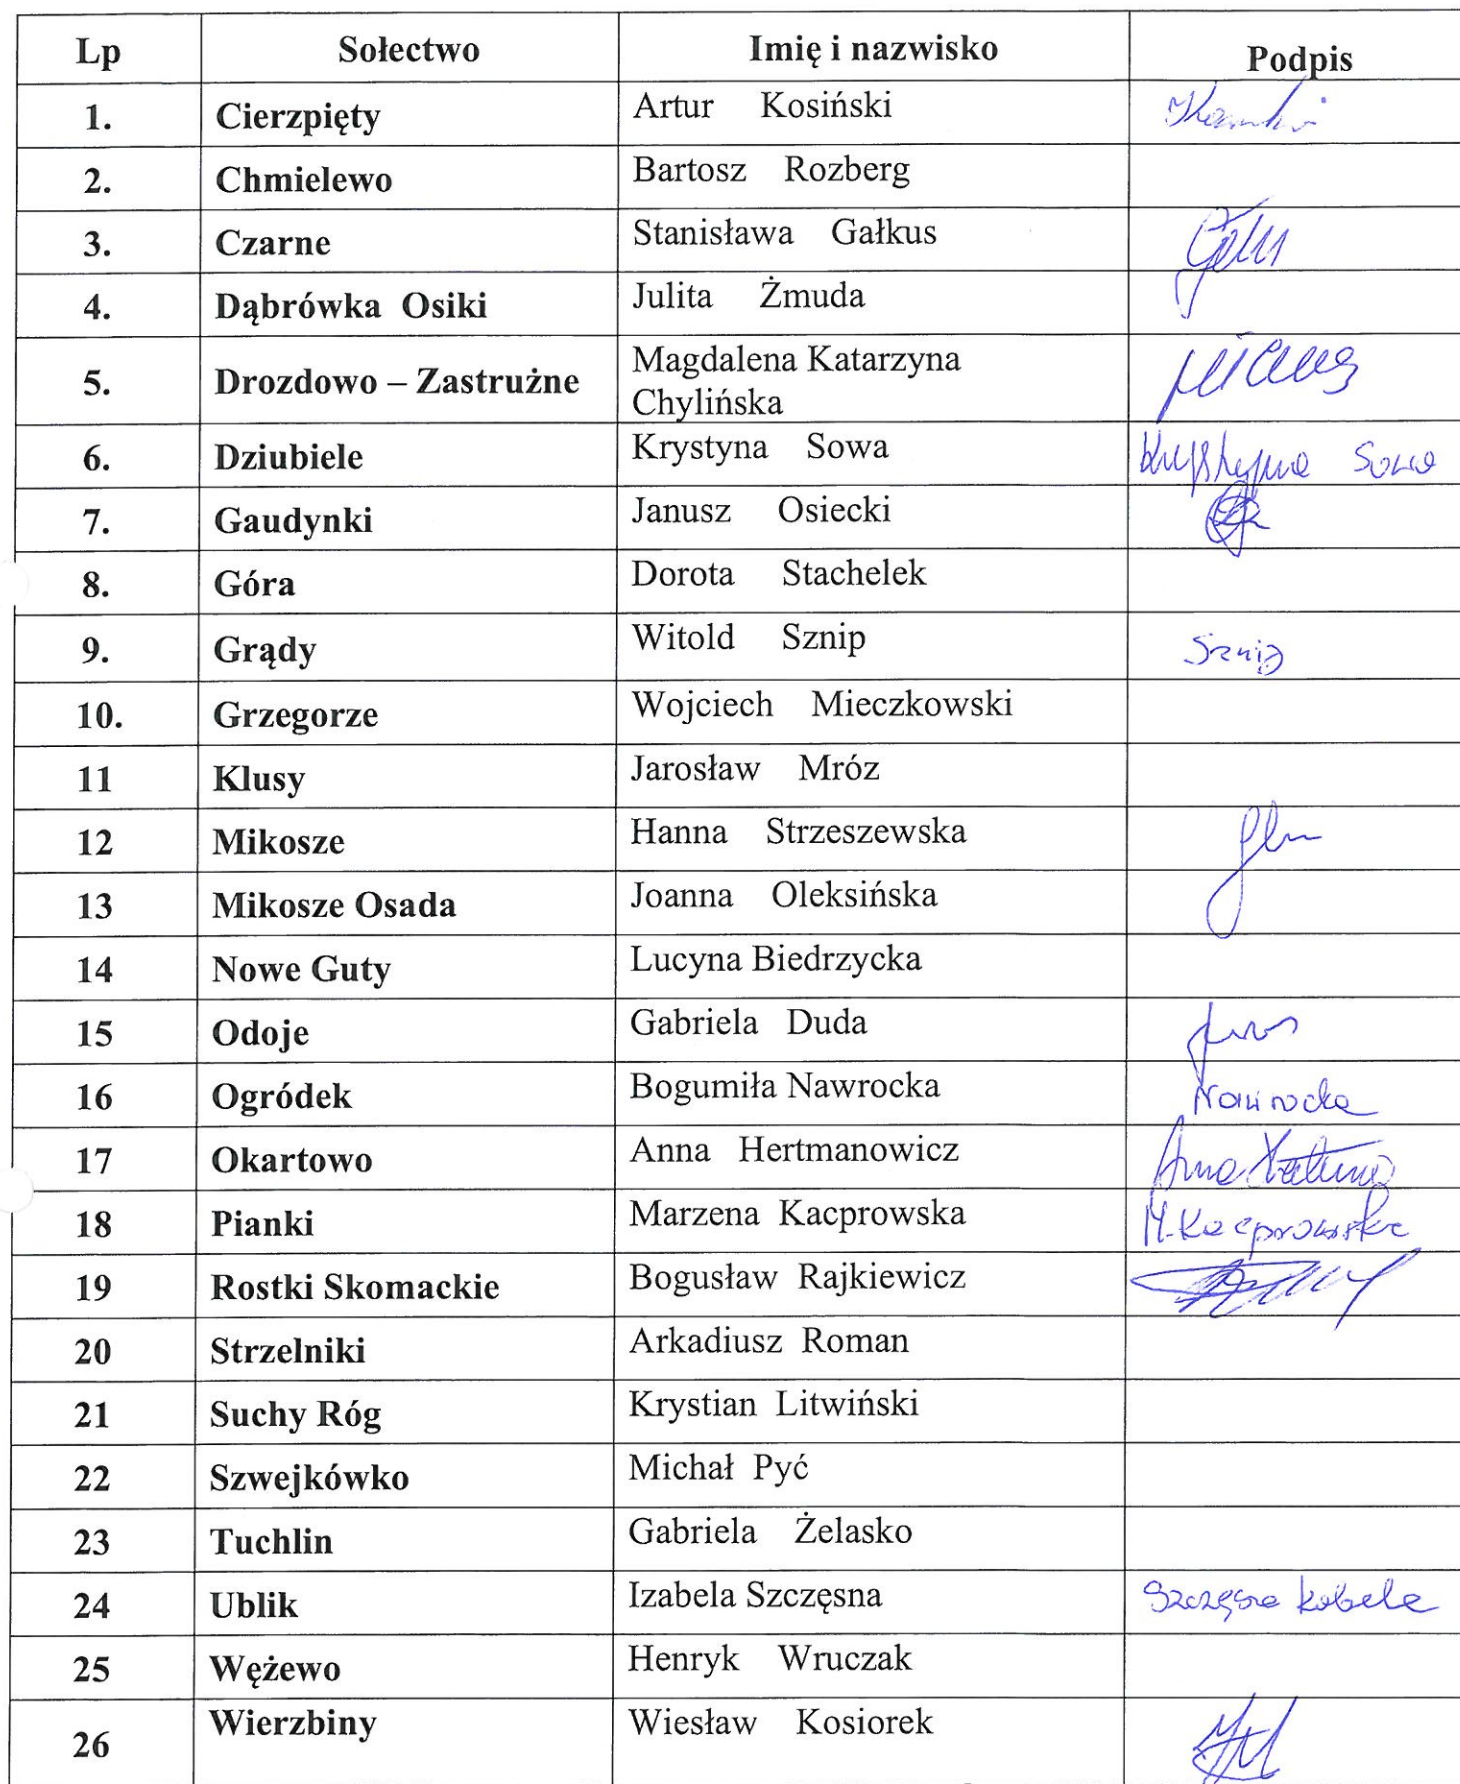 Lp Sołectwo Imię i nazwisko Podpis
1. Cierzpięty Artur Kosiński
2. Chmielewo Bartosz Rozberg
3. Czarne Stanisława Gałkus
4. Dąbrówka Osiki Julita Żmuda
5. Drozdowo – Zastrużne Magdalena Katarzyna
Chylińska
6. Dziubiele Krystyna Sowa Krystyna Sowa
7. Gaudynki Janusz Osiecki
8. Góra Dorota Stachelek
9. Grądy Witold Sznip Sznip
10. Grzegorze Wojciech Mieczkowski
11 Klusy Jarosław Mróz
12 Mikosze Hanna Strzeszewska
13 Mikosze Osada Joanna Oleksińska
14 Nowe Guty Lucyna Biedrzycka
15 Odoje Gabriela Duda
16 Ogródek Bogumiła Nawrocka Nawrocka
17 Okartowo Anna Hertmanowicz Anna
18 Pianki Marzena Kacprowska M. Kacprowska
19 Rostki Skomackie Bogusław Rajkiewicz
20 Strzelniki Arkadiusz Roman
21 Suchy Róg Krystian Litwiński
22 Szwejkówko Michał Pyć
23 Tuchlin Gabriela Żelasko
24 Ublik Izabela Szczęsna Szczęsna
25 Wężewo Henryk Wruczak
26 Wierzbiny Wiesław Kosiorek